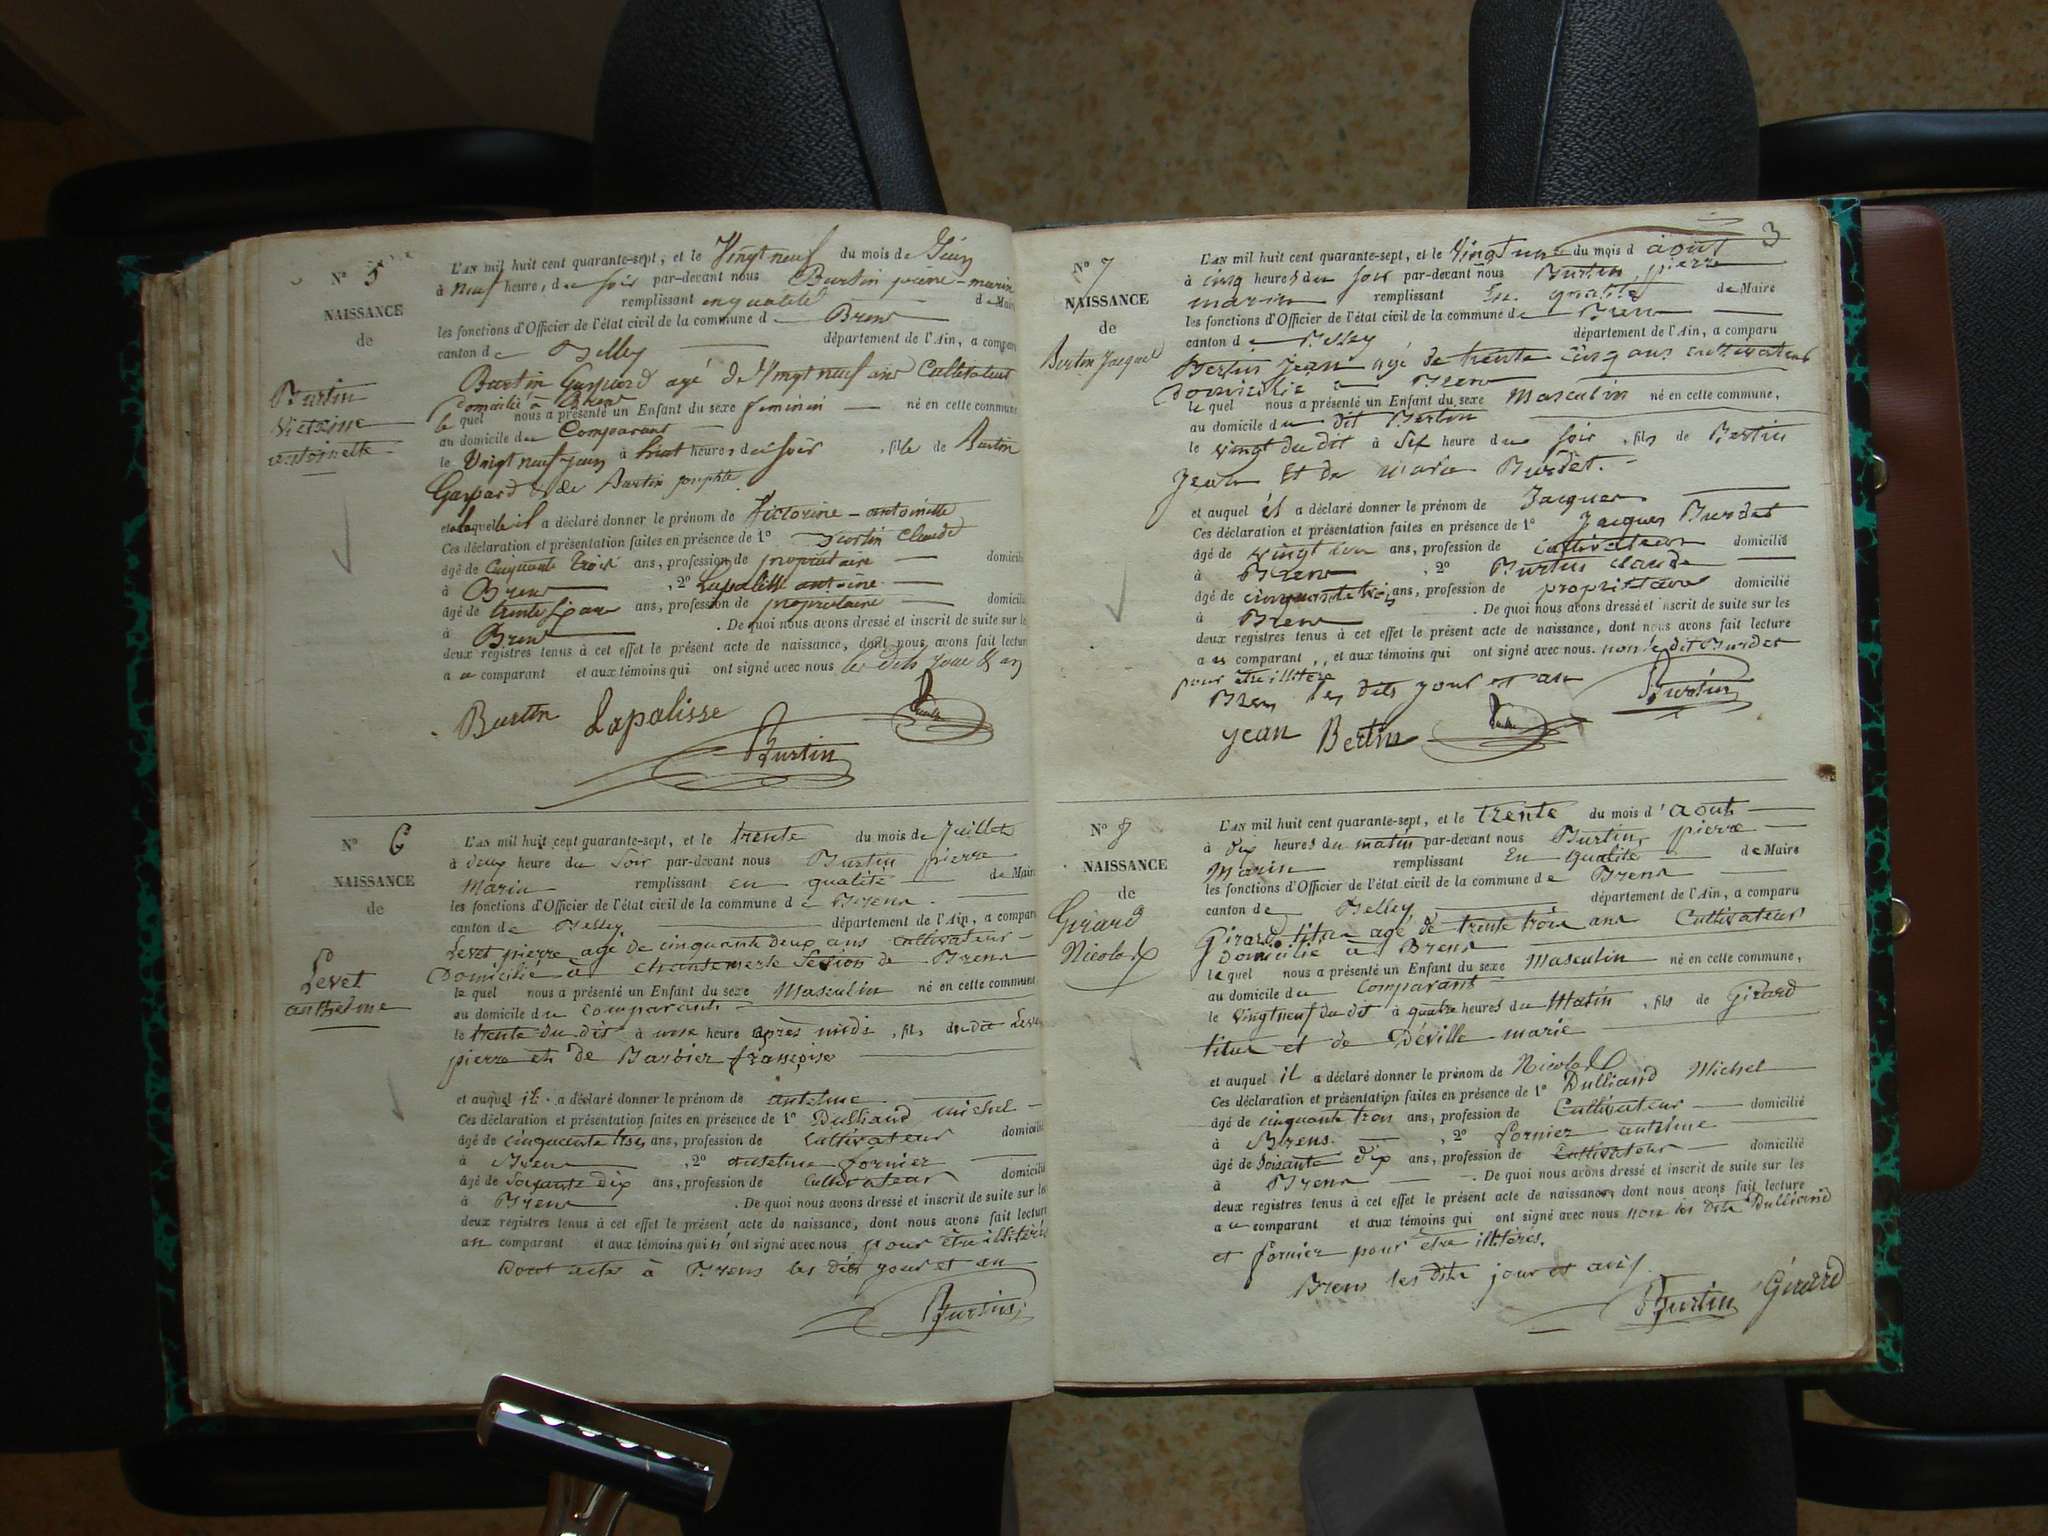 N° 5
NAISSANCE
de
Burtin
Victorine
antoinette
L'AN mil huit cent quarante-sept, et le Vingt neuf du mois de Juin
à neuf heure, du soir par-devant nous Burtin pierre-marin
remplissant en qualité de Maire
les fonctions d'Officier de l'état civil de la commune de Brens
canton de Belley département de l'Ain, a comparu
Burtin Gaspard agé de Vingt neuf ans Cultivateur
domicilié à Brens
le quel nous a présenté un Enfant du sexe feminin né en cette commune
au domicile du Comparant
le Vingt neuf juin à huit heures du soir , fille de Burtin
Gaspard & de Burtin josephte
et a laquelle il a déclaré donner le prénom de Victorine-antoinette
Ces déclaration et présentation faites en présence de 1° Burtin Claude
âgé de Cinquante trois ans, profession de propriétaire domicilié
à Brens , 2° Lapalisse antoine
âgé de trente ans, profession de propriétaire domicilié
à Brens . De quoi nous avons dressé et inscrit de suite sur les
deux registres tenus à cet effet le présent acte de naissance, dont nous avons fait lecture
a u comparant et aux témoins qui ont signé avec nous les dits jour & an
Burtin Lapalisse
Burtin
N° 6
NAISSANCE
de
Levet
anthelme
L'AN mil huit cent quarante-sept, et le trente du mois de Juillet
à deux heure du soir par-devant nous Burtin pierre
Marin remplissant en qualité de Maire
les fonctions d'Officier de l'état civil de la commune de Brens
canton de Belley département de l'Ain, a comparu
Levet pierre agé de cinquante deux ans cultivateur
Domicilié à Chantemerle Section de Brens
le quel nous a présenté un Enfant du sexe Masculin né en cette commune
au domicile du comparant
le trente du dit à une heure après midi , fils du dit Levet
pierre et de Barbier françoise
et auquel il a déclaré donner le prénom de antelme
Ces déclaration et présentation faites en présence de 1° Dulliand michel
âgé de cinquante trois ans, profession de Cultivateur domicilié
à Brens , 2° antelme fornier
âgé de Soixante dix ans, profession de Cultivateur domicilié
à Brens . De quoi nous avons dressé et inscrit de suite sur les
deux registres tenus à cet effet le présent acte de naissance, dont nous avons fait lecture
au comparant et aux témoins qui n'ont signé avec nous pour être illitérés
Dont acte à Brens les dits jour et an
Burtin
3
N° 7
NAISSANCE
de
Bertin Jacques
L'AN mil huit cent quarante-sept, et le Vingt un du mois d août
à cinq heures du soir par-devant nous Burtin pierre
marin remplissant En qualité de Maire
les fonctions d'Officier de l'état civil de la commune de Brens
canton de Belley département de l'Ain, a comparu
Bertin Jean agé de trente cinq ans cultivateur
Domicilié à Brens
le quel nous a présenté un Enfant du sexe Masculin né en cette commune,
au domicile du dit Bertin
le vingt du dit à Six heure du soir , fils de Bertin
Jean Et de maria Burdet.
et auquel il a déclaré donner le prénom de Jacques
Ces déclaration et présentation faites en présence de 1° Jacques Burdet
âgé de vingt ans, profession de cultivateur domicilié
à Brens , 2° Burtin claude
âgé de cinquante trois ans, profession de propriétaire domicilié
à Brens . De quoi nous avons dressé et inscrit de suite sur les
deux registres tenus à cet effet le présent acte de naissance, dont nous avons fait lecture
a u comparant , et aux témoins qui ont signé avec nous. non le dit Burdet
pour être illitéré
Brens les dits jour et an Burtin
jean Bertin
N° 8
NAISSANCE
de
Girard
Nicolas
L'AN mil huit cent quarante-sept, et le trente du mois d'aout
à dix heures du matin par-devant nous Burtin, pierre
Marin remplissant En qualité de Maire
les fonctions d'Officier de l'état civil de la commune de Brens
canton de Belley département de l'Ain, a comparu
Girard titus agé de trente trois ans Cultivateur
Domicilié à Brens
le quel nous a présenté un Enfant du sexe Masculin né en cette commune,
au domicile du comparant
le vingt neuf du dit à quatre heures du Matin , fils de Girard
titus et de Déville marie
et auquel il a déclaré donner le prénom de Nicolas
Ces déclaration et présentation faites en présence de 1° Dulliand Michel
âgé de cinquante trois ans, profession de Cultivateur domicilié
à Brens. , 2° fornier antelme
âgé de Soixante dix ans, profession de Cultivateur domicilié
à Brens . De quoi nous avons dressé et inscrit de suite sur les
deux registres tenus à cet effet le présent acte de naissance, dont nous avons fait lecture
a u comparant et aux témoins qui ont signé avec nous non les dits Dulliand
et fornier pour être illitérés.
Brens les dits jour et an
Burtin Girard